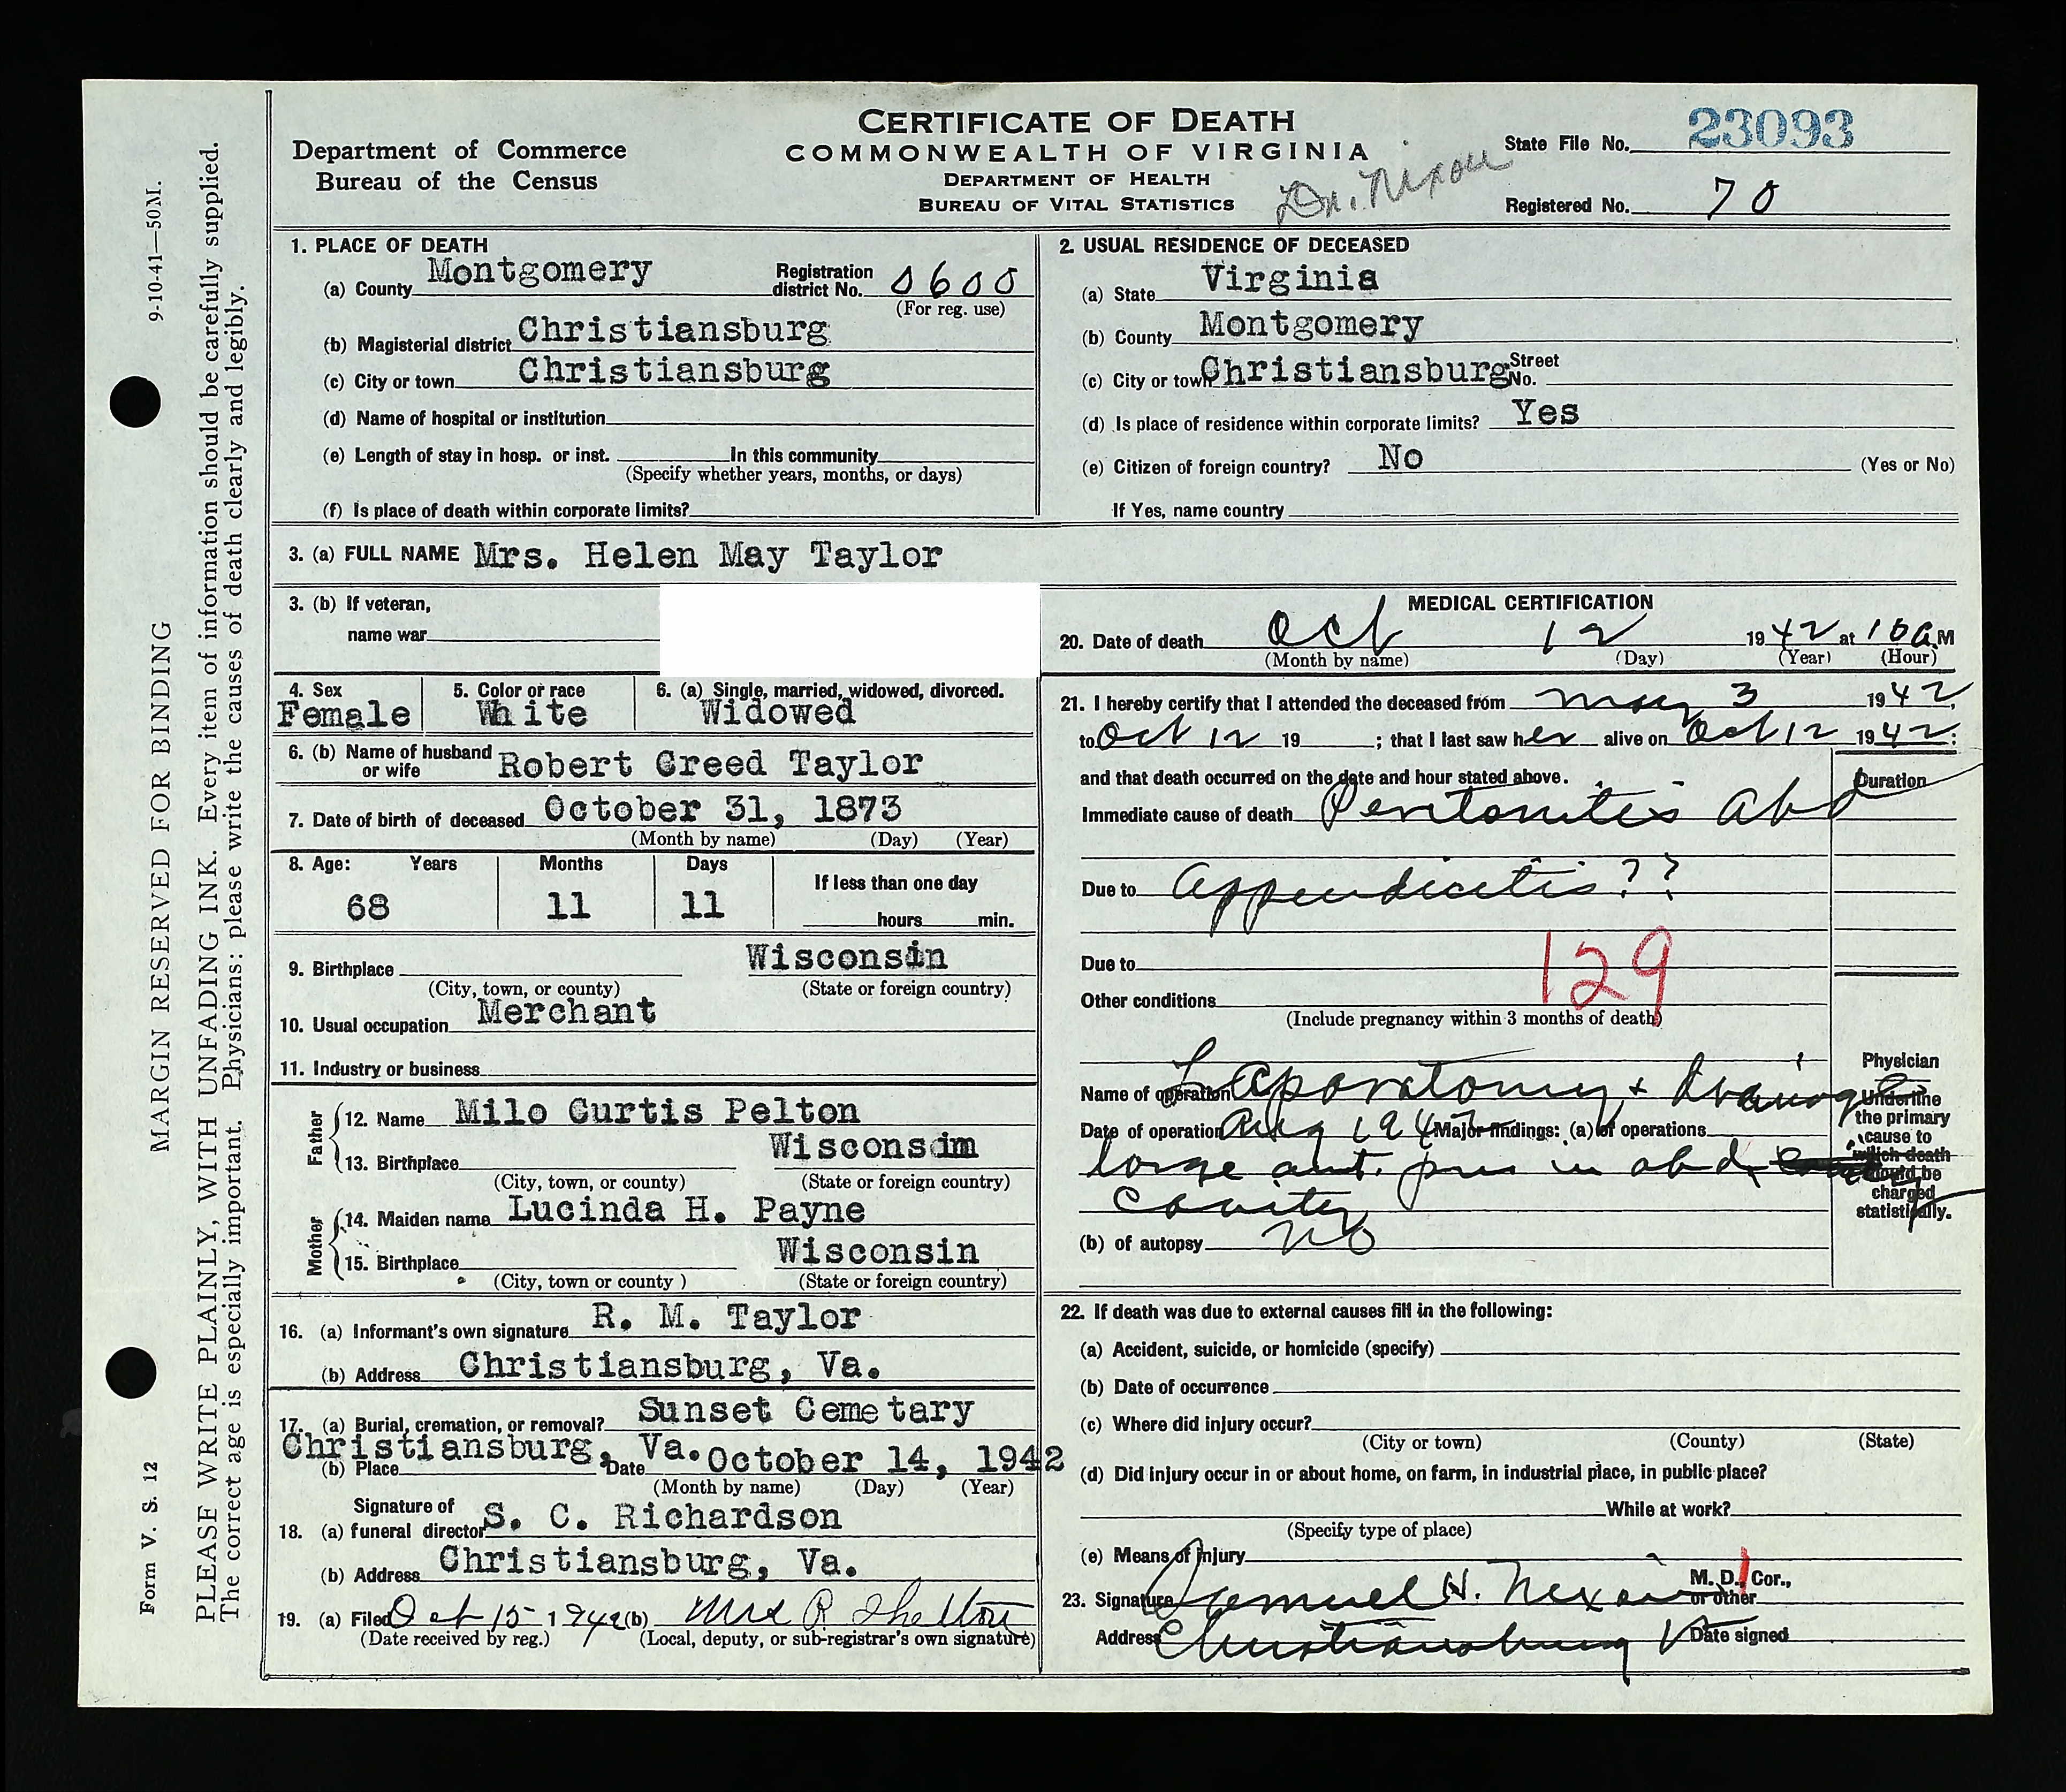 CERTIFICATE OF DEATH
COMMONWEALTH OF VIRGINIA
DEPARTMENT OF HEALTH
BUREAU OF VITAL STATISTICS
Department of Commerce
Bureau of the Census
Dr. Nixon
State File No. 23093
Registered No. 70
9-10-41—50M.
MARGIN RESERVED FOR BINDING
Form V. S. 12
PLEASE WRITE PLAINLY, WITH UNFADING INK. Every item of information should be carefully supplied.
The correct age is especially important. Physicians: please write the causes of death clearly and legibly.
1. PLACE OF DEATH
(a) County Montgomery Registration district No. 0600
(For reg. use)
(b) Magisterial district Christiansburg
(c) City or town Christiansburg
(d) Name of hospital or institution
(e) Length of stay in hosp. or inst. In this community
(Specify whether years, months, or days)
(f) Is place of death within corporate limits?
2. USUAL RESIDENCE OF DECEASED
(a) State Virginia
(b) County Montgomery
(c) City or town Christiansburg Street No.
(d) Is place of residence within corporate limits? Yes
(e) Citizen of foreign country? No (Yes or No)
If Yes, name country
3. (a) FULL NAME Mrs. Helen May Taylor
3. (b) If veteran,
name war
4. Sex 5. Color or race 6. (a) Single, married, widowed, divorced.
Female White Widowed
6. (b) Name of husband or wife Robert Creed Taylor
7. Date of birth of deceased October 31, 1873
(Month by name) (Day) (Year)
8. Age: Years Months Days If less than one day
68 11 11 hours min.
9. Birthplace Wisconsin
(City, town, or county) (State or foreign country)
10. Usual occupation Merchant
11. Industry or business
Father
12. Name Milo Curtis Pelton
13. Birthplace Wisconsim
(City, town, or county) (State or foreign country)
Mother
14. Maiden name Lucinda H. Payne
15. Birthplace Wisconsin
(City, town or county ) (State or foreign country)
16. (a) Informant's own signature R. M. Taylor
(b) Address Christiansburg, Va.
17. (a) Burial, cremation, or removal? Sunset Cemetary
(b) Place Christiansburg, Va. Date October 14, 1942
(Month by name) (Day) (Year)
18. (a) Signature of funeral director S. C. Richardson
(b) Address Christiansburg, Va.
19. (a) Filed Oct 15 1942 (b) Mrs R Shelton
(Date received by reg.) (Local, deputy, or sub-registrar's own signature)
MEDICAL CERTIFICATION
20. Date of death Oct 12 1942 at 10 a.M
(Month by name) (Day) (Year) (Hour)
21. I hereby certify that I attended the deceased from may 3 1942,
to Oct 12 19 ; that I last saw her alive on Oct 12 1942;
and that death occurred on the date and hour stated above. Duration
Immediate cause of death Peritonitis Abd
Due to Appendicitis??
Due to
129
Other conditions
(Include pregnancy within 3 months of death)
Name of operation Laporatomy + Drainage
Date of operation Aug 1942 Major findings: (a) of operations
large amt. pus in abd.
cavity
(b) of autopsy No
Physician
Underline
the primary
cause to
which death
should be
charged
statistically.
22. If death was due to external causes fill in the following:
(a) Accident, suicide, or homicide (specify)
(b) Date of occurrence
(c) Where did injury occur?
(City or town) (County) (State)
(d) Did injury occur in or about home, on farm, in industrial place, in public place?
While at work?
(Specify type of place)
(e) Means of injury
23. Signature Samuel H. Nixon M. D., Cor., or other
Address Christiansburg V Date signed